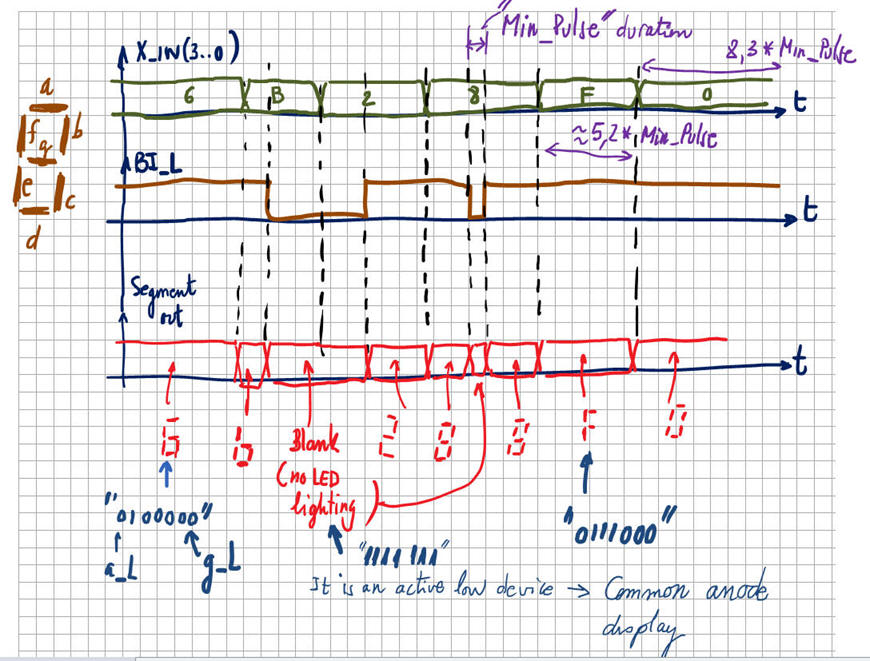 "Min_Pulse" duration
X_IN(3..0)
8,3 * Min_Pulse
a
6 B 2 8 F 0
t
f b
g
≈5,2 * Min_Pulse
BI_L
e c
t
d
Segment
out
t
6 b Blank 2 8 8 F 0
(no LED
lighting)
"0100000"
"0111000"
a_L g_L "1111111"
It is an active low device → Common anode
display